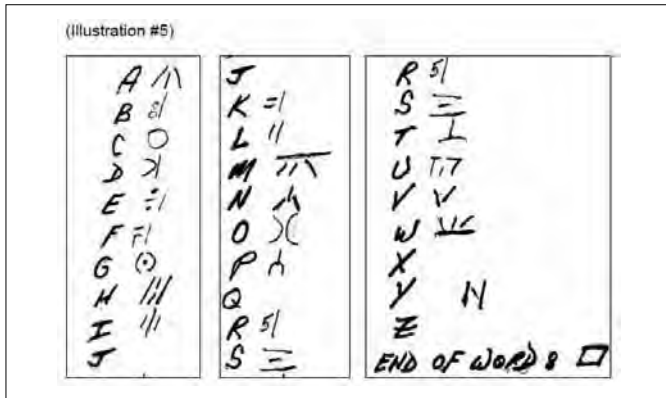 (Illustration #5)
A
B 8/
C
D
E
F
G
H
I
J
J
K =/
L //
M
N
O )(
P
Q
R 5/
S
R 5/
S
T
U
V
W
X
Y
Z
END OF WORD 8